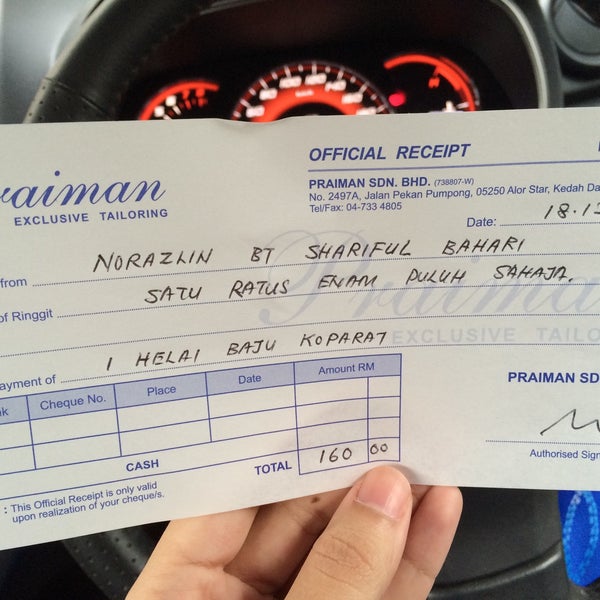 raiman
EXCLUSIVE TAILORING
OFFICIAL RECEIPT
PRAIMAN SDN. BHD. (738807-W)
No. 2497A, Jalan Pekan Pumpong, 05250 Alor Star, Kedah Da
Tel/Fax: 04-733 4805
Date: 18.1
from NORAZLIN BT SHARIFUL BAHARI
of Ringgit SATU RATUS ENAM PULUH SAHAJA.
Praiman
EXCLUSIVE TAILO
ayment of 1 HELAI BAJU KOPARAT
nk Cheque No. Place Date Amount RM
PRAIMAN SD
CASH TOTAL 160 00
Authorised Sign
: This Official Receipt is only valid
upon realization of your cheque/s.